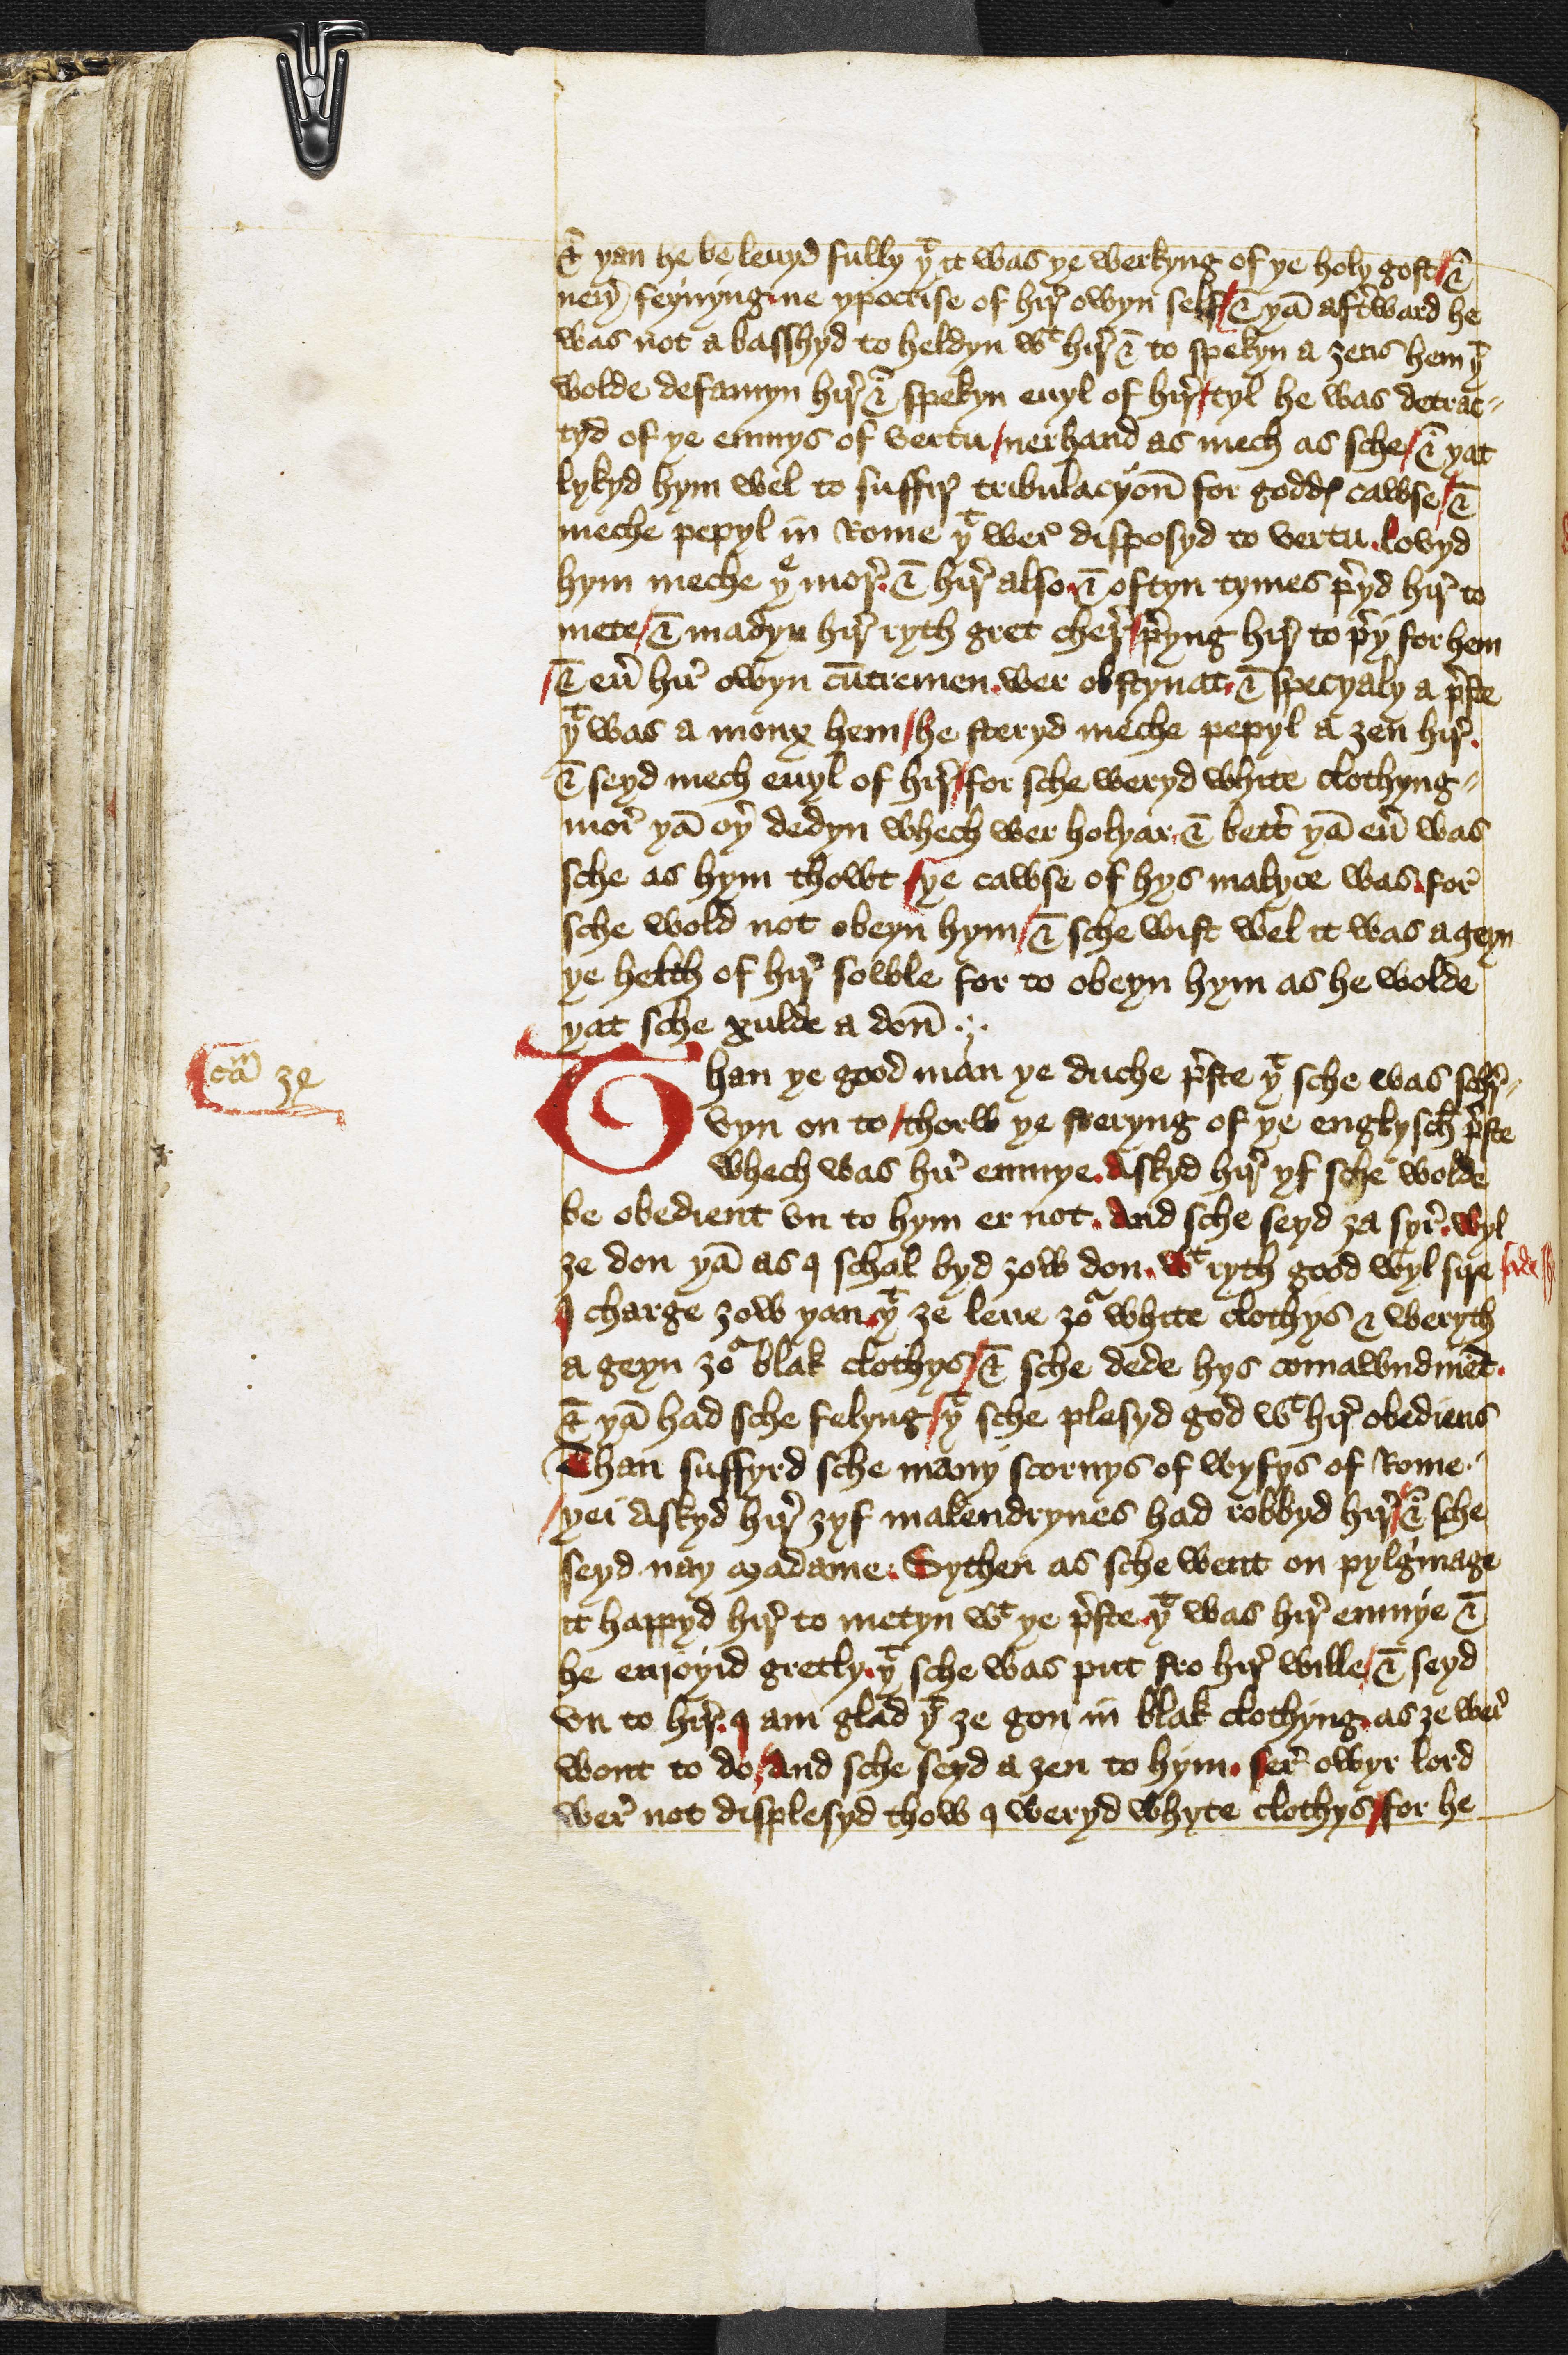 & yan he be leuyd fully yt it was ye werkyng of ye holy gost / &
neiy feynyng. ne ypocrise of hir owyn self / & yā aftward he
was not a basshyd to heldyn wt hir & to spekyn a zens hem yt
wolde defamyn hir & spekyn euyl of hir / tyl he was detrac=
tyd of ye enmys of vertu / nerhand as mech as sche / & yat
lykyd hym wel to suffir tribulacyon̄ for godds cawse / &
meche pepyl in Rome yt wer disposyd to vertu. lovyd
hym meche ye mor. & hir also. & oftyn tymes pyd hir to
mete / & madyn hir ryth gret cher / pyng hir to py for hem
/ & eū hir owyn cūtremen. wer obstynat. & specyaly a pste
yt was a mong hem / he steryd meche pepyl a zen hir.
& seyd mech euyl of hir / for sche weryd white clothyng=
mor yā oy dedyn whech wer holyar. & bett yā eū was
sche as hym thowt / ye cawse of hys malyce was. for
sche wold not obeyn hym / & sche wist wel it was a geyn
ye helth of hir sowle for to obeyn hym as he wolde
yat sche xulde a don̄ .;.
cām 34
Than ye good man ye duche pste yt sche was schr=
vyn on to / thorw ye steryng of ye englysch pste
whech was hir enmye. Askyd hir yf sche wolde
be obedient vn to hym er not. And sche seyd za syr. wyl
ze don yā as I schal byd zow don. wt ryth good wyl sire
I charge zow yan. yt ze leue zor white clothys & weryth
a geyn zor blak clothys / & sche dede hys comawndmēt.
& yā had sche felyng / yt sche plesyd god wt hir obediens
Than suffyrd sche many scornys of wyfys of Rome.
/ yei askyd hir zyf malendrynes had robbyd hir / & sche
seyd nay madame. Sythen as sche went on pylgmage
it happyd hir to metyn wt ye pste. yt was hir enmye &
he enioyid gretly. yt sche was put fro hir wille / & seyd
vn to hir. I am glad yt ze gon in blak clothyng. as ze wer
wont to do / And sche seyd a zen to hym. ser owyr lord
wer not displesyd thow I weryd whyte clothys / for he